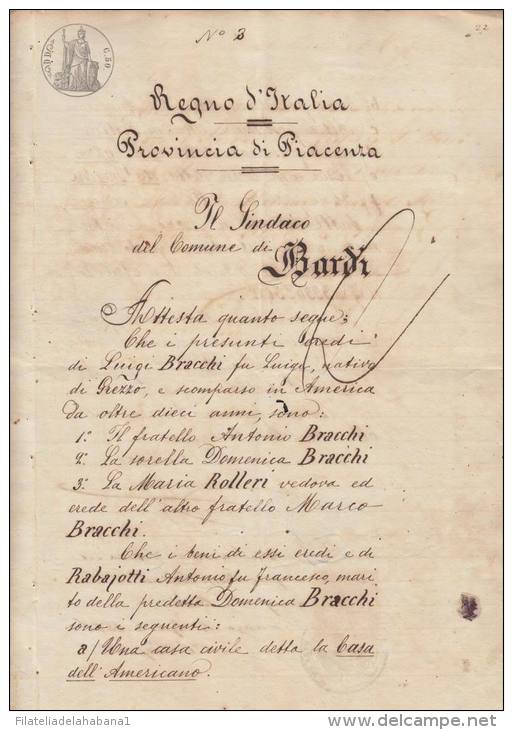 Nº 3
22
C. 50
Regno d'Italia
Provincia di Piacenza
Il Sindaco
del Comune di Bardi
Attesta quanto segue:
Che i presunti eredi
di Luigi Bracchi fu Luigi, nativo
di Grezzo, e scomparso in America
da oltre dieci anni, sono:
1º Il fratello Antonio Bracchi
2º La sorella Domenica Bracchi
3º La Maria Rolleri vedova ed
erede dell'altro fratello Marco
Bracchi.
Che i beni di essi eredi e di
Rabajotti Antonio fu Francesco, mari
to della predetta Domenica Bracchi
sono i seguenti:
a/ Una casa civile detta la Casa
dell'Americano.
Filateliadelahabana1
www.delcampe.net